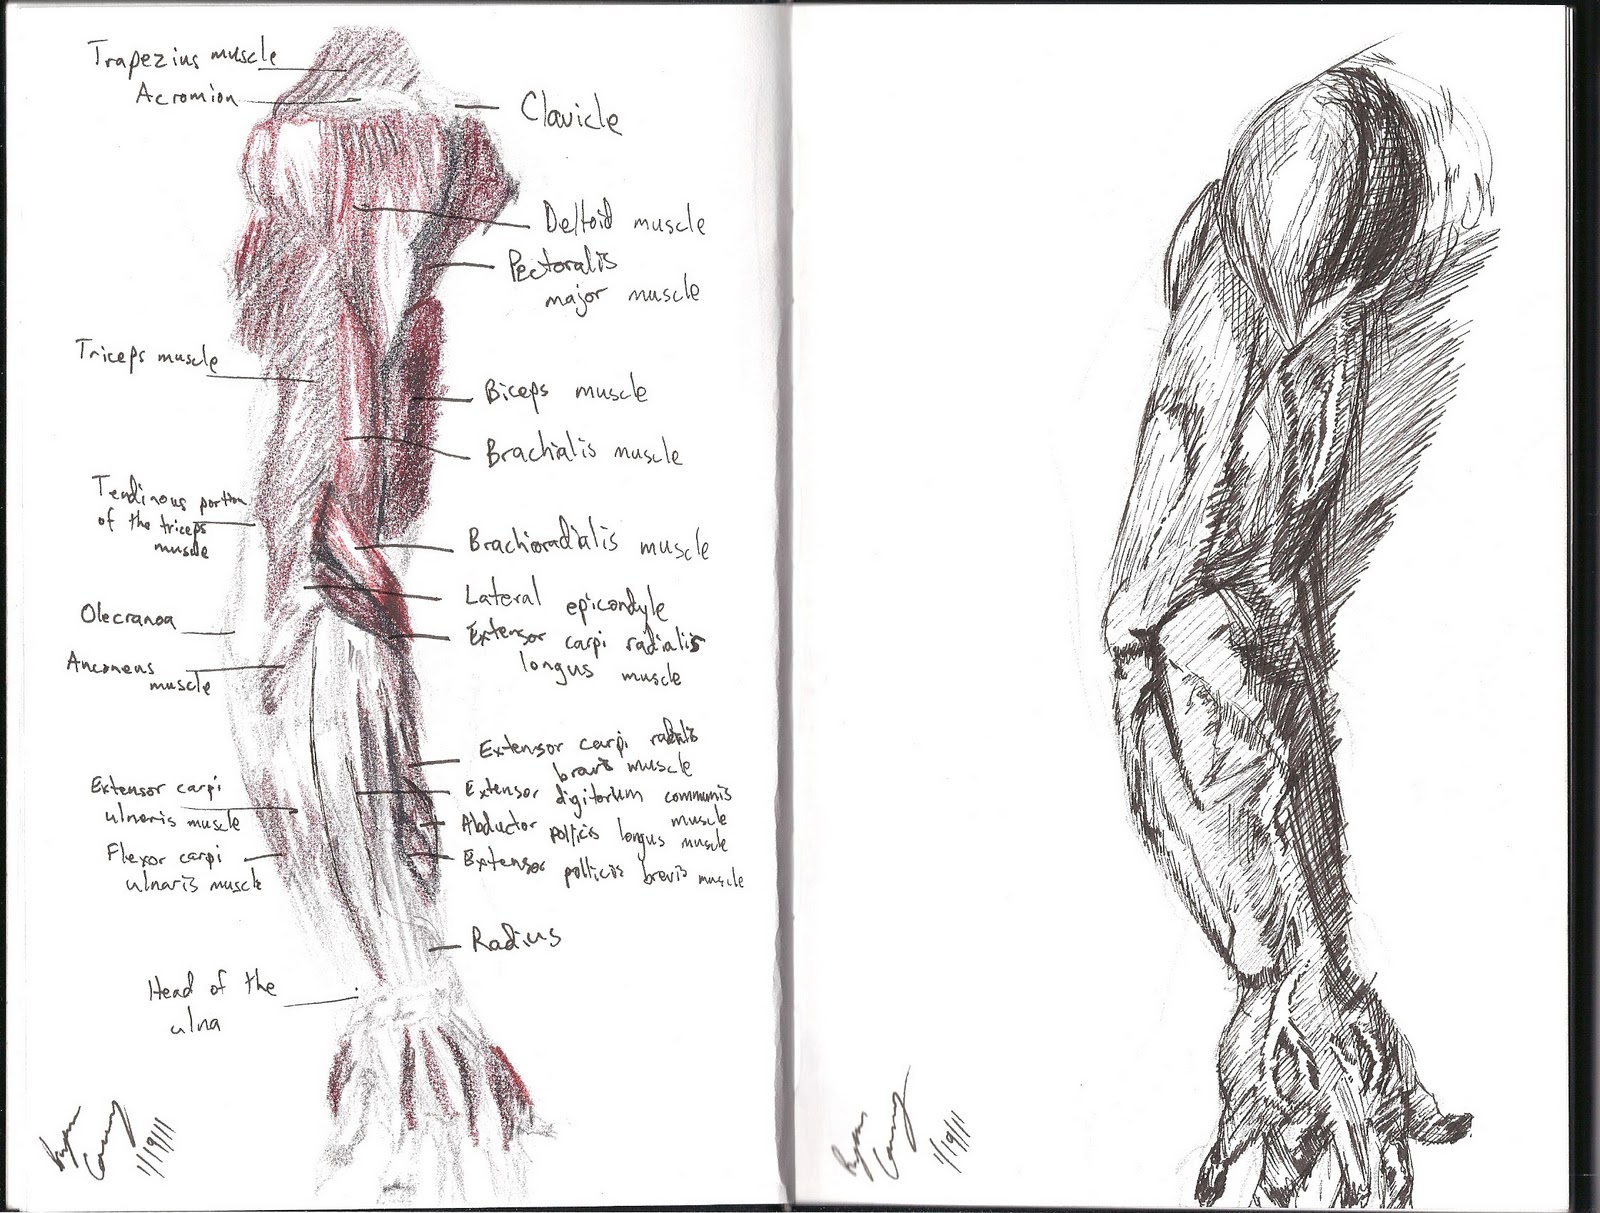 Trapezius muscle
Acromion
Clavicle
Deltoid muscle
Pectoralis
major muscle
Triceps muscle
Biceps muscle
Brachialis muscle
Tendinous portion
of the triceps
muscle
Brachioradialis muscle
Lateral epicondyle
Olecranoa
Extensor carpi radialis
longus muscle
Anconeus
muscle
Extensor carpi radialis
bravis muscle
Extensor carpi
ulnaris muscle
Extensor digitorum communis
muscle
Abductor pollicis longus muscle
Flexor carpi
ulnaris muscle
Extensor pollicis brevis muscle
Radius
Head of the
ulna
Ryan
1/19/11
Ryan
1/19/11